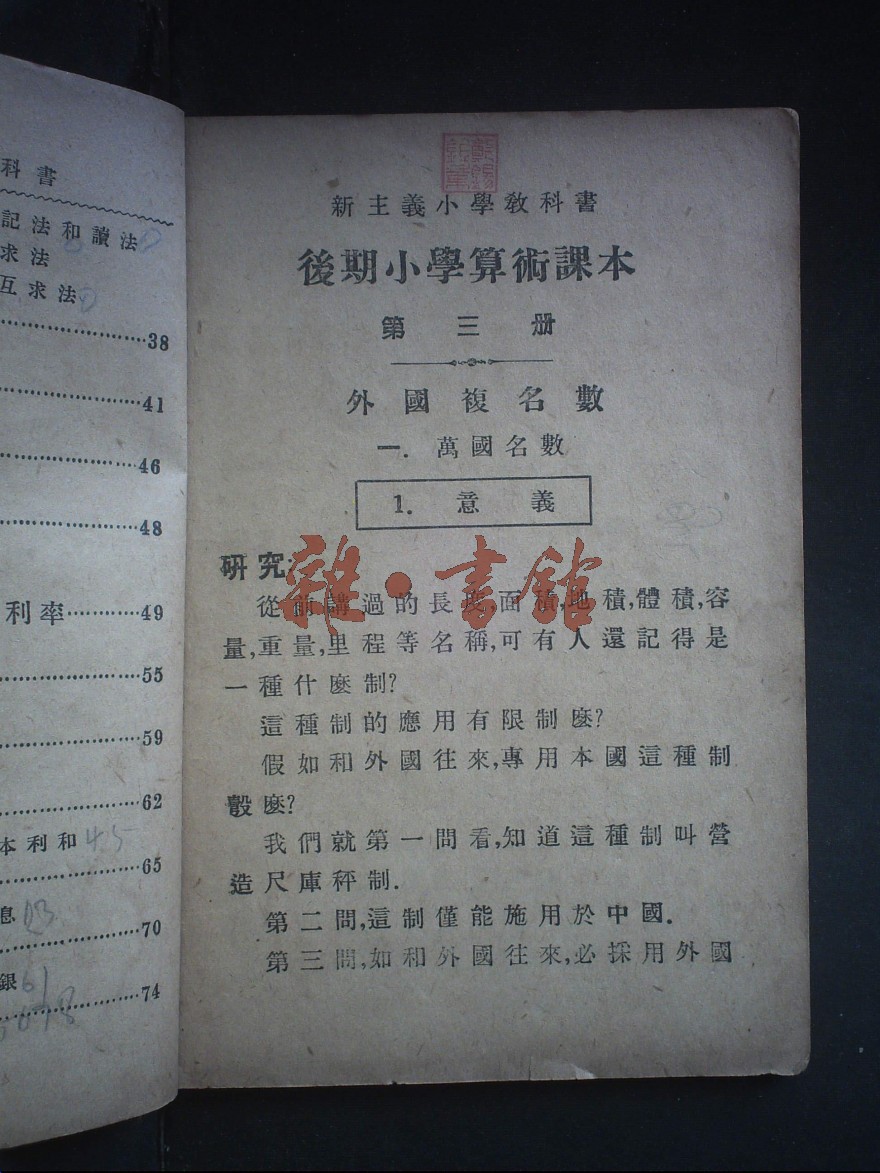 科書
記法和讀法
求法
互求法
38
41
46
48
利率…………49
55
59
62
本利和 45
65
息
70
銀
74
新主義小學教科書
後期小學算術課本
第三册
外國複名數
一. 萬國名數
1. 意義
研究:
從前講過的長度,面積,地積,體積,容
量,重量,里程等名稱,可有人還記得是
一種什麽制?
這種制的應用有限制麽?
假如和外國往來,專用本國這種制
彀麽?
我們就第一問看,知道這種制叫營
造尺庫秤制.
第二問,這制僅能施用於中國.
第三問,如和外國往來,必採用外國
雜·書館